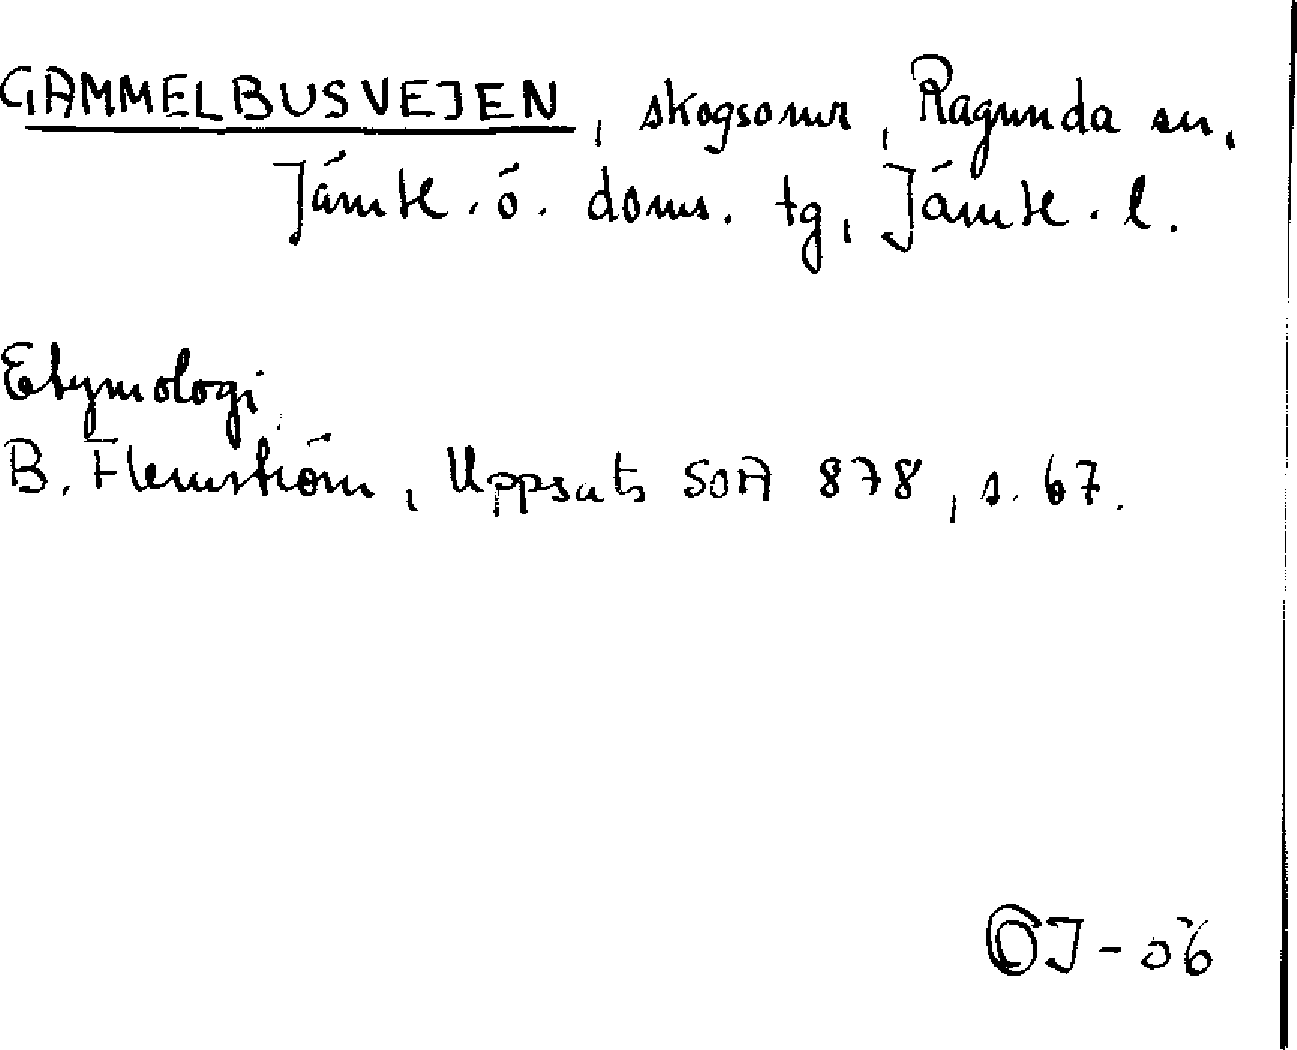 GAMMELBUSVEJEN, skogsomr, Ragunda sn,
Jämtl. ö. doms. tg, Jämtl. l.
Etymologi
B. Flemström, Uppsats SOA 878, s. 67.
OJ-06